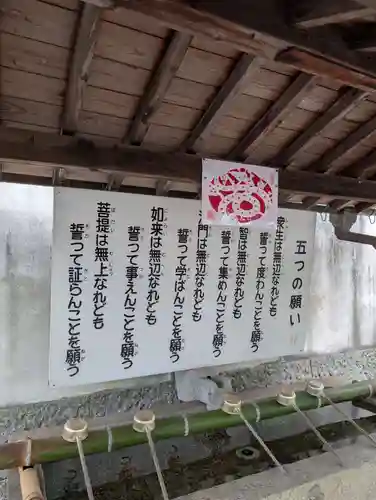 五つの願い
衆生は無辺なれども
誓って度わんことを願う
智は無辺なれども
誓って集めんことを願う
門は無辺なれども
誓って学ばんことを願う
如来は無辺なれども
誓って事えんことを願う
菩提は無上なれども
誓って証らんことを願う